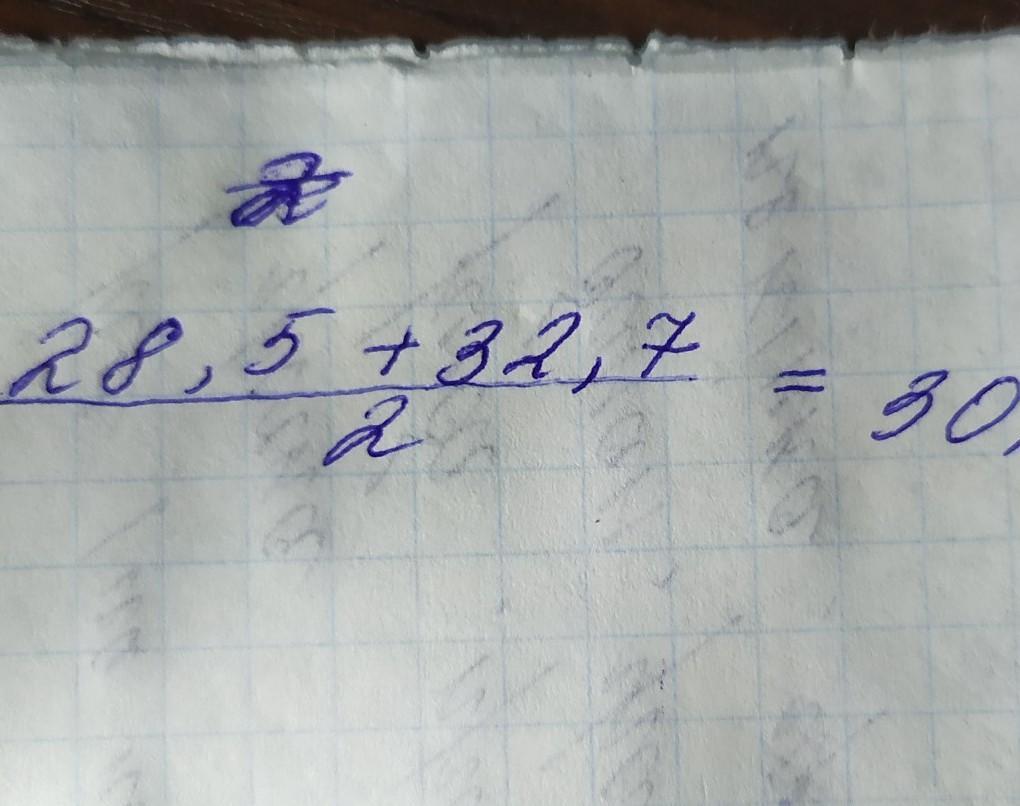 28,5 + 32,7
2
= 30,